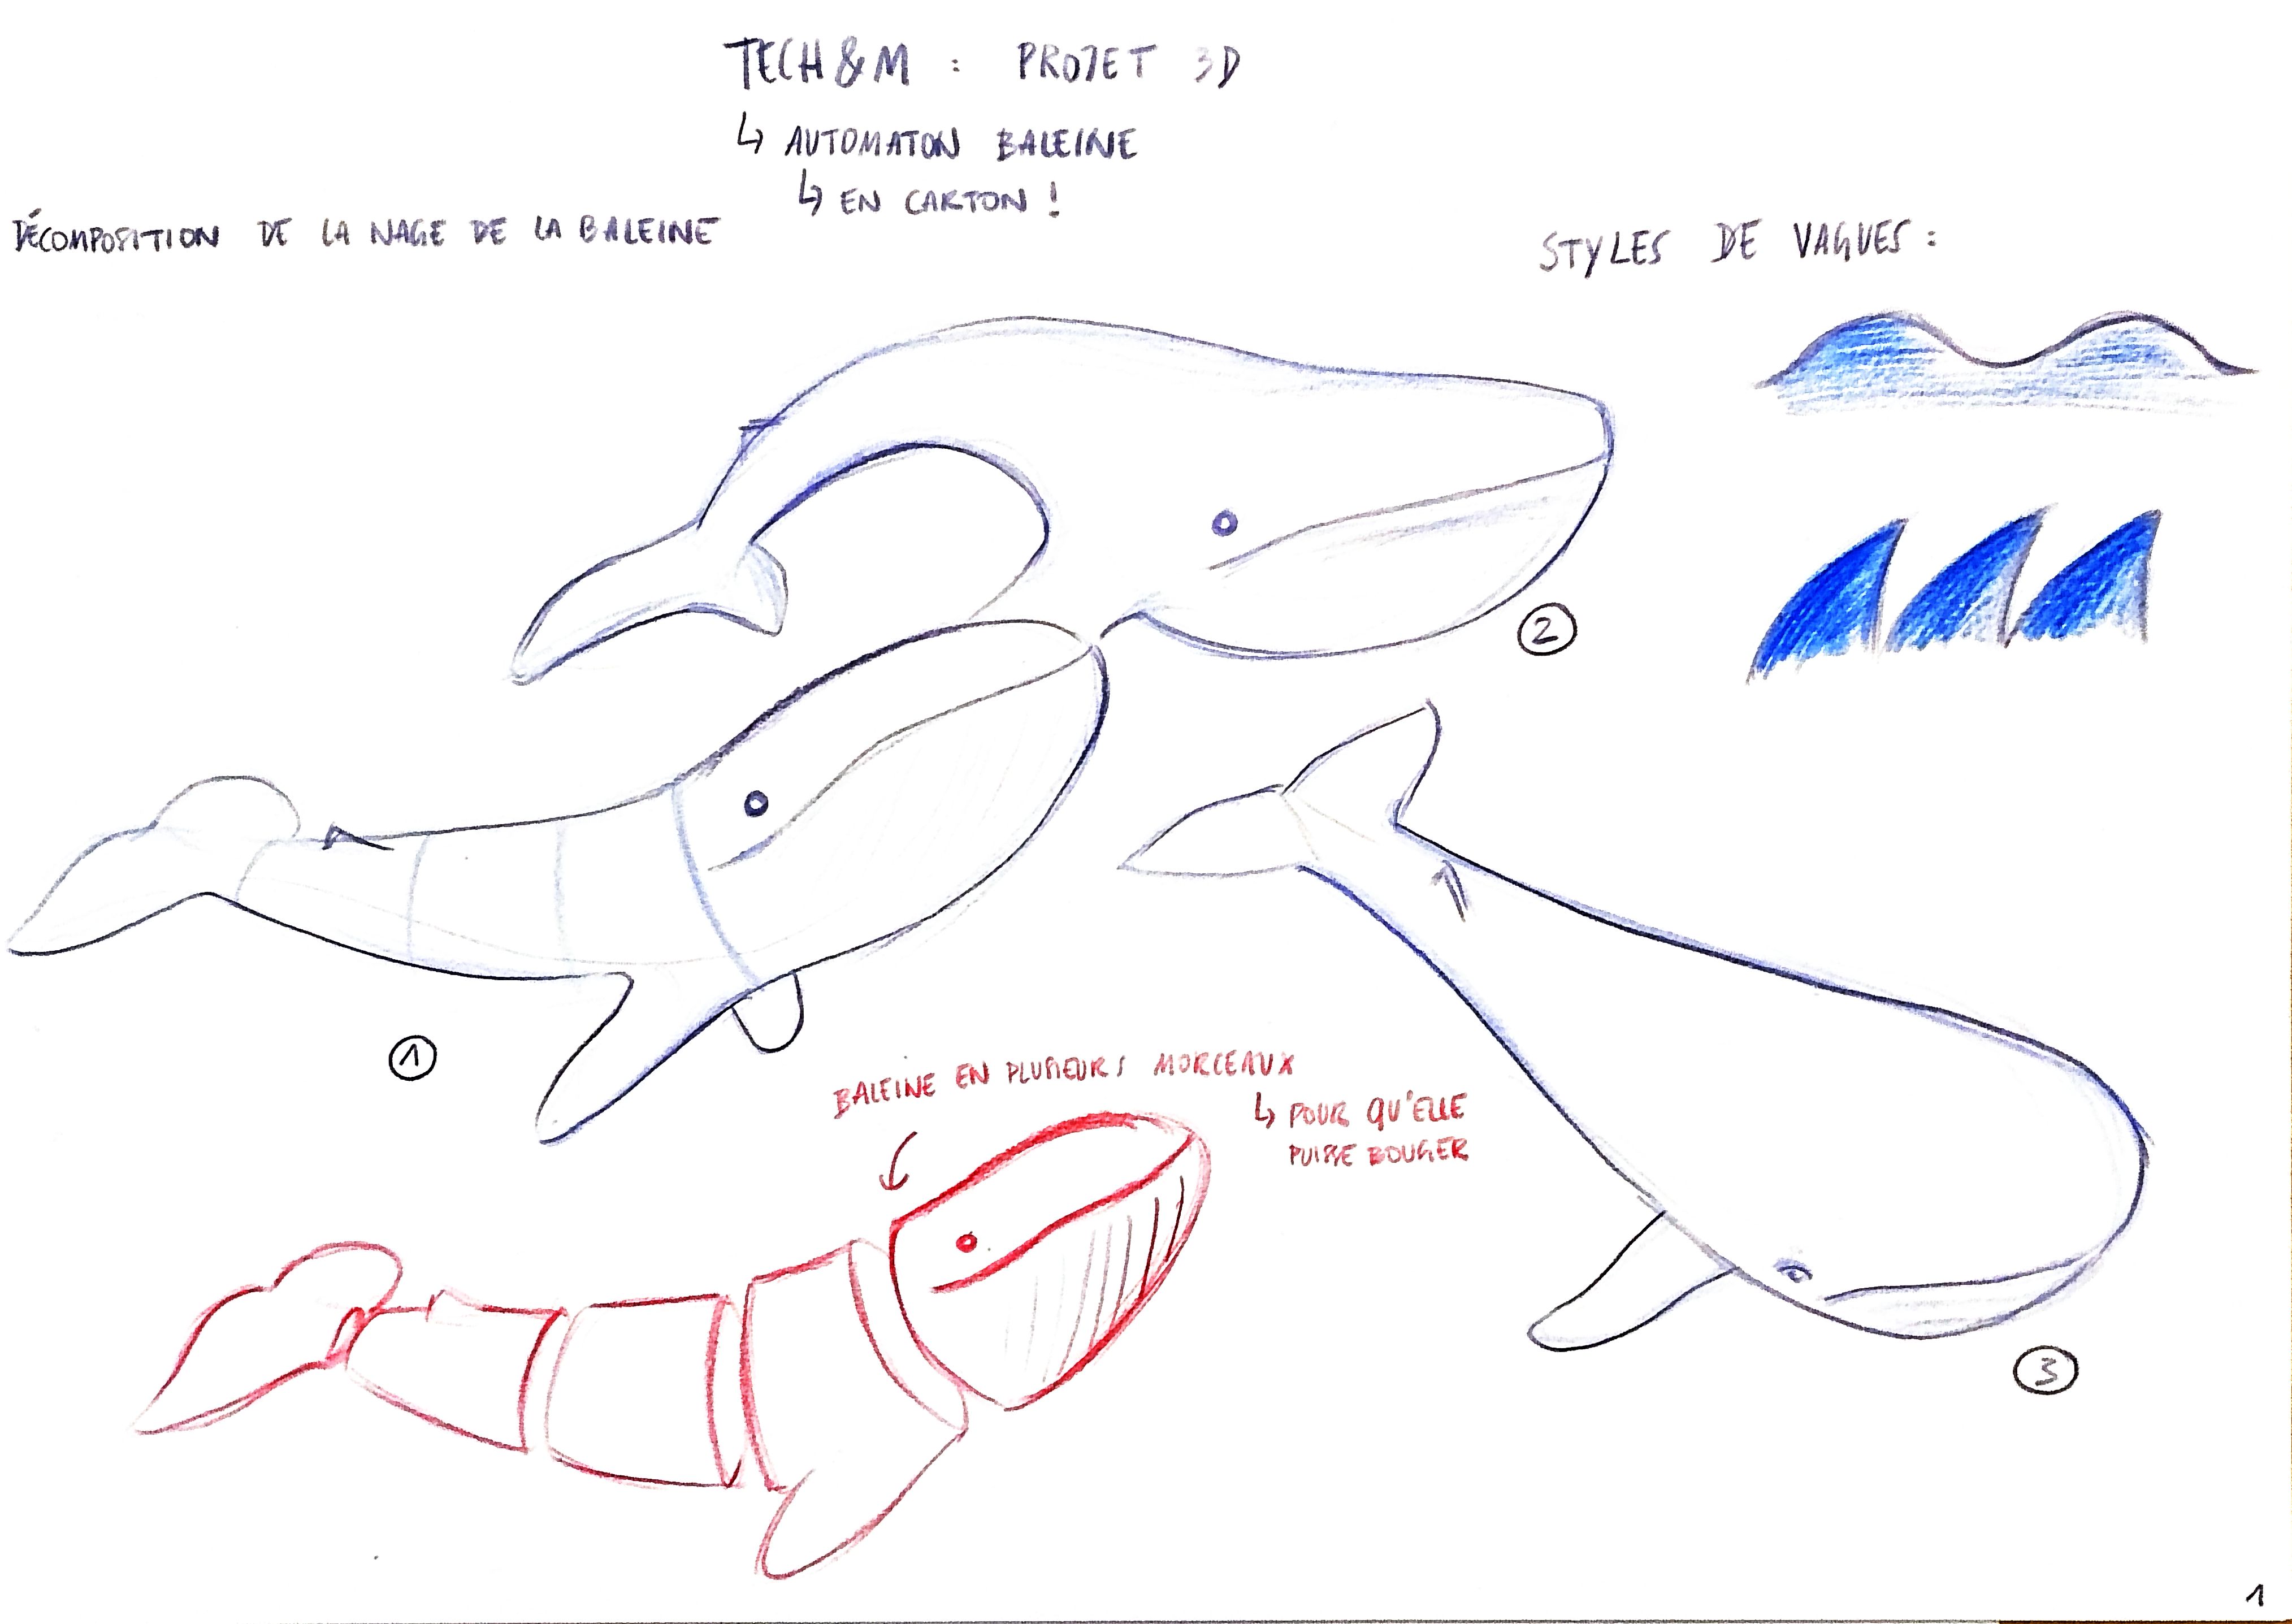 TECH&M : PROJET 3D
↳ AUTOMATON BALEINE
↳ EN CARTON !
DÉCOMPOSITION DE LA NAGE DE LA BALEINE
STYLES DE VAGUES :
2
1
BALEINE EN PLUSIEURS MORCEAUX
↳ POUR QU'ELLE
PUISSE BOUGER
3
1